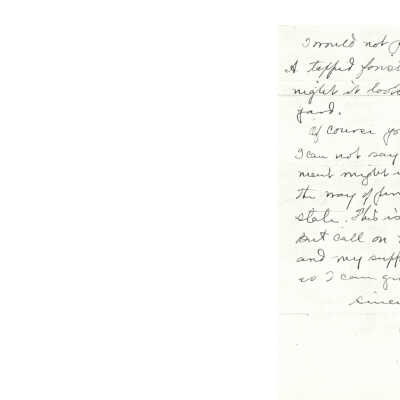 I would not
A
night it looks
yard.
Of course yo
I can not say
ment might
the way of
state. This is
But call on
and my supp
so I can gi
since